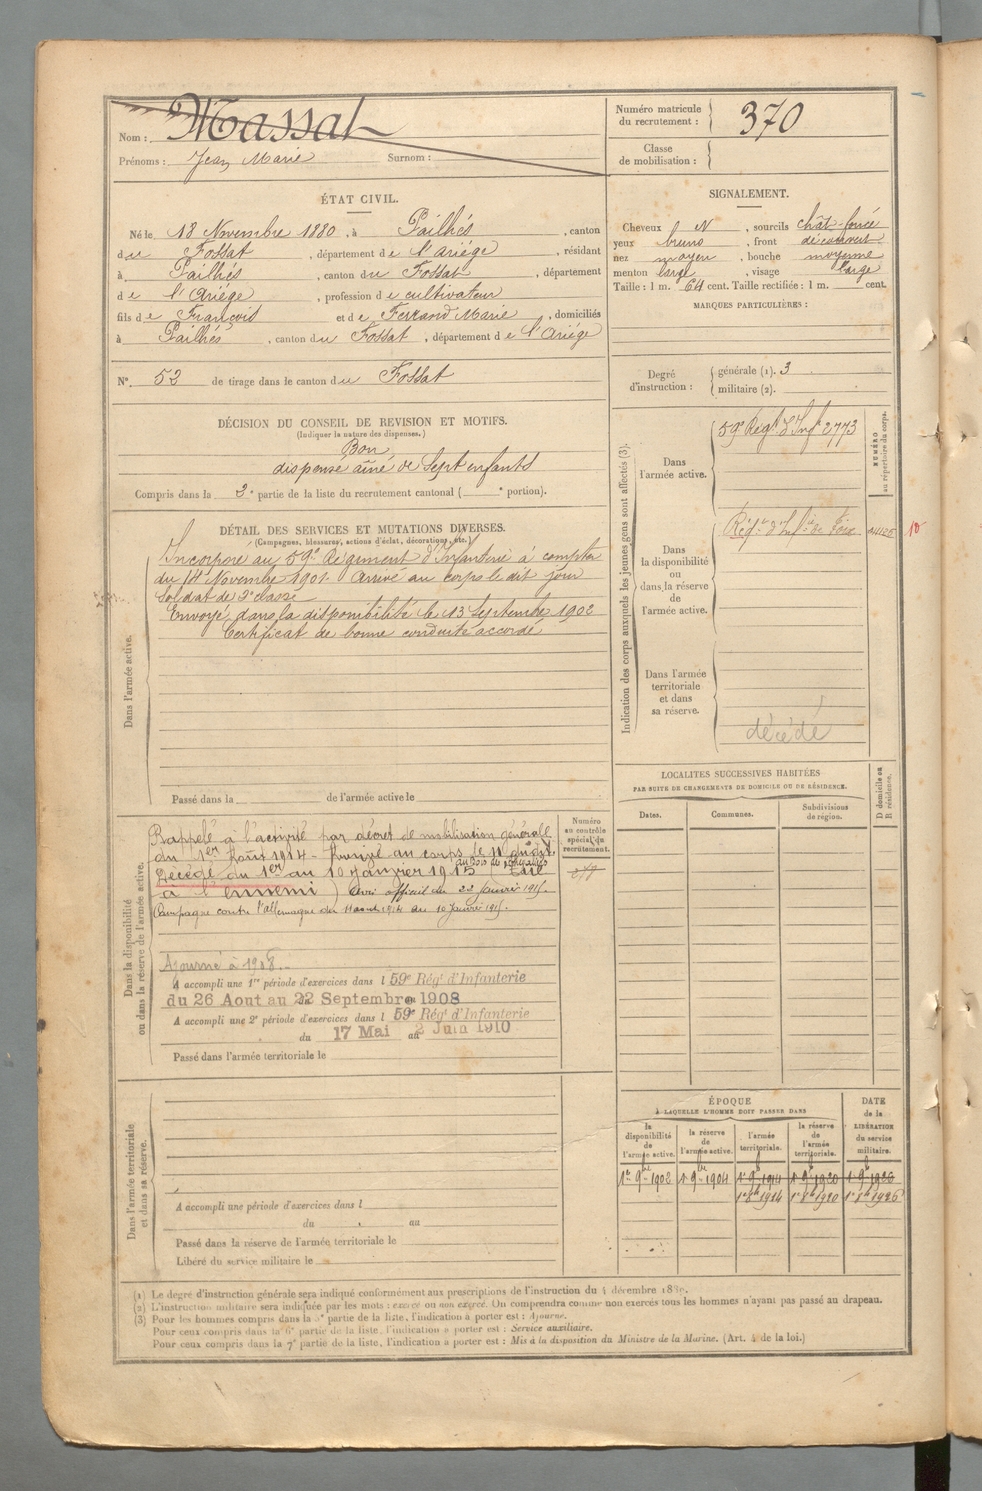 Nom : Massat
Prénoms : Jean Marie Surnom :
Numéro matricule du recrutement : 370
Classe de mobilisation :
ÉTAT CIVIL.
Né le 18 Novembre 1880, à Pailhés, canton
du Fossat, département de l'Ariége, résidant
à Pailhés, canton du Fossat, département
de l'Ariége, profession de cultivateur
fils de François et de Ferrand Marie, domiciliés
à Pailhés, canton du Fossat, département de l'Ariége
N° 52 de tirage dans le canton du Fossat
SIGNALEMENT.
Cheveux N, sourcils chât-foncé
yeux bruns, front découvert
nez moyen, bouche moyenne
menton large, visage large
Taille : 1 m. 64 cent. Taille rectifiée : 1 m. cent.
MARQUES PARTICULIÈRES :
Degré d'instruction : générale (1). 3
militaire (2).
DÉCISION DU CONSEIL DE REVISION ET MOTIFS.
(Indiquer la nature des dispenses.)
Bon
dispensé aîné de sept enfants
Compris dans la 2e partie de la liste du recrutement cantonal ( e portion).
DÉTAIL DES SERVICES ET MUTATIONS DIVERSES.
(Campagnes, blessures, actions d'éclat, décorations, etc.)
Dans l'armée active.
Incorporé au 59e Régiment d'Infanterie à compter
du 14 Novembre 1901. Arrivé au corps le dit jour
Soldat de 2e classe
Envoyé dans la disponibilité le 13 Septembre 1902
Certificat de bonne conduite accordé
Passé dans la de l'armée active le
Indication des corps auxquels les jeunes gens sont affectés (3).
NUMÉRO au répertoire du corps.
Dans l'armée active.
59e Régt d'Infie 2773
Dans la disponibilité ou dans la réserve de l'armée active.
Régt d'Infie de Foix
10
Dans l'armée territoriale et dans sa réserve.
décédé
LOCALITÉS SUCCESSIVES HABITÉES
PAR SUITE DE CHANGEMENTS DE DOMICILE OU DE RÉSIDENCE.
Dates. Communes. Subdivisions de région. D domicile ou R résidence.
Dans la disponibilité ou dans la réserve de l'armée active.
Numéro au contrôle spécial du recrutement.
Rappelé à l'activité par décret de mobilisation générale
du 1er Août 1914 - Arrivé au corps le 11 du dit.
Décédé du 1er au 10 janvier 1915 (Tué
à l'ennemi) avis officiel du 22 Janvier 1915.
Campagne contre l'allemagne du 11 aout 1914 au 10 Janvier 1915.
Ajourné à 1908.
A accompli une 1re période d'exercices dans l 59e Rég't d'Infanterie
du 26 Aout au 22 Septembre 1908
A accompli une 2e période d'exercices dans l 59e Rég't d'Infanterie
du 17 Mai au 2 Juin 1910
Passé dans l'armée territoriale le
Dans l'armée territoriale et dans sa réserve.
A accompli une période d'exercices dans l
du au
Passé dans la réserve de l'armée territoriale le
Libéré du service militaire le
ÉPOQUE
À LAQUELLE L'HOMME DOIT PASSER DANS
la disponibilité de l'armée active. la réserve de l'armée active. l'armée territoriale. la réserve de l'armée territoriale. DATE de la LIBÉRATION du service militaire.
1er 9bre 1902 1er 9bre 1904 1er 9b 1914 1er 9b 1920 1er 9b 1926
1er 8b 1914 1er 8b 1920 1er 8b 1926
(1) Le degré d'instruction générale sera indiqué conformément aux prescriptions de l'instruction du 4 décembre 1889.
(2) L'instruction militaire sera indiquée par les mots : exercé ou non exercé. On comprendra comme non exercés tous les hommes n'ayant pas passé au drapeau.
(3) Pour les hommes compris dans la 5e partie de la liste, l'indication à porter est : Ajourné.
Pour ceux compris dans la 6e partie de la liste, l'indication à porter est : Service auxiliaire.
Pour ceux compris dans la 7e partie de la liste, l'indication à porter est : Mis à la disposition du Ministre de la Marine. (Art. 4 de la loi.)